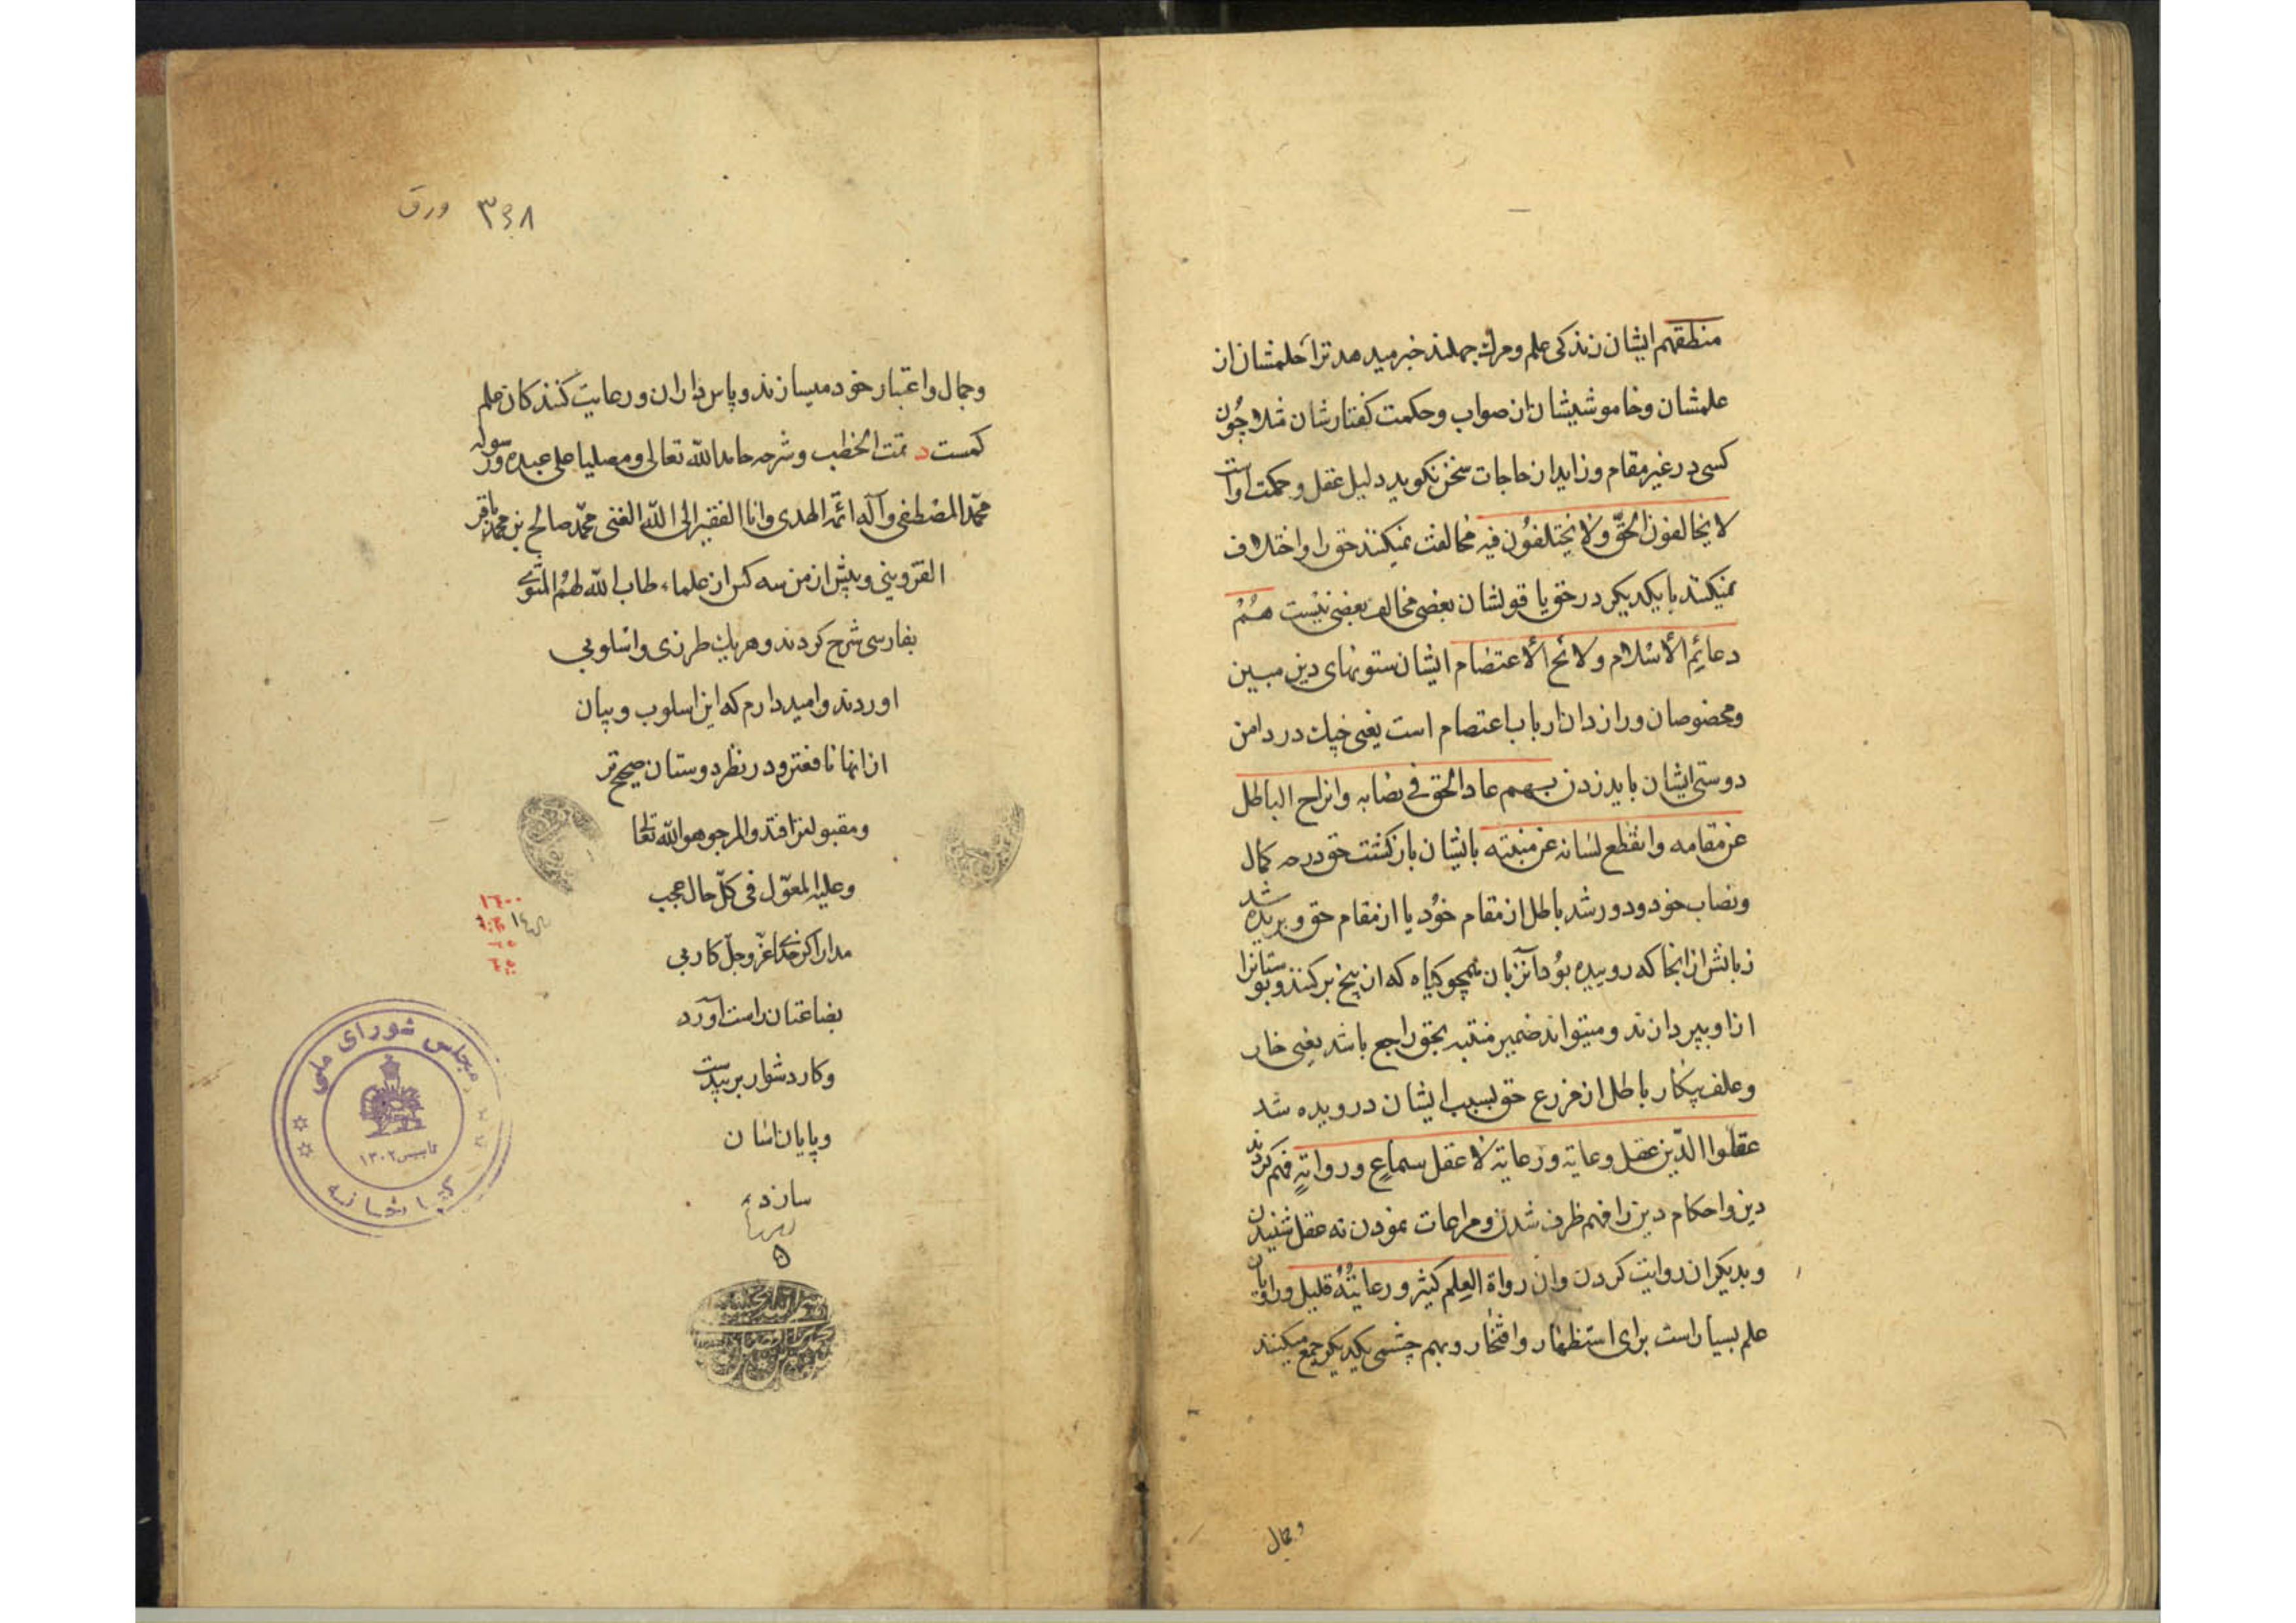 منطقهم ایشان زندکی علم و مرك جهلند خبر میدهد ترا حلمشان از
علمشان و خاموشیشان از صواب و حکمت کفتارشان مثلا چون
کسی در غیر مقام و زاید از حاجات سخن نکوید دلیل عقل و حکمت اوست
لا یخالفون الحقّ ولا یختلفون فیه مخالفت نمیکنند حق را و اختلاف
نمیکنند با یکدیکر در حق یا قولشان بعضی مخالف بعضی نیست هُمْ
دعائم الأسلام و لائج الأعتصام ایشان ستونهای دین مبین
و مخصوصان و رازدان ارباب اعتصام است یعنی چنك در دامن
دوستی ایشان باید زدن بهم عاد الحق فی نصابه وانزاح الباطل
عن مقامه وانقطع لسانه عن منبته بایشان بازکشت حق در حد کمال
و نصاب خود و دور شد باطل از مقام خود یا از مقام حق و بریده شد
زبانش از انجا که روییده بود آنزبان همچو کیاه که از بیخ بر کنند و بوستانرا
از او بپردازند و میتواند ضمیر منبته بحق راجع باشد یعنی خار
و علف بیکار باطل از مزرع حق بسبب ایشان درویده شد
عقلوا الدّین عقل وعایة ورعایة لا عقل سماع وروایةٍ فهم کردند
دین و احکام دین را فهم ظرف شدن و مراعات نمودن نه عقل شنیدن
و بدیکران روایت کردن وان رواة العلم کثیر ورعایتُهُ قلیل و راویان
علم بسیار است برای استظهار و افتخار و بهم چشمی یکدیکر جمع میکنند
و جمال
۳۳۸ ورق
و جمال و اعتبار خود میسازند و پاس داران و رعایت کنندکان علم
کمست تمت الخطب و شرحه حامدا لله تعالی و مصلیا علی عبده ورسوله
محمّد المصطفی وآله ائمّة الهدی وانا الفقیر الی الله الغنی محمّد صالح بن محمد باقر
القزوینی و پیش از من سه کس از علماء طاب الله لهم المثوی
بفارسی شرح کردند و هریك طرزی و اسلوبی
اوردند و امیدوارم که این اسلوب و بیان
از انها نافعتر و در نظر دوستان صحیح تر
و مقبولتر افتد والمرجو هو الله تعالی
وعلیه المعوّل فی کلّ حال عجب
مدار اکر خدای عزّ وجلّ کار بی
بضاعتان راست آورد
و کار دشوار بر بیدست
و پایان اسان
سازد
مجلس شورای ملی
تاسیس ۱۳۰۲
کتابخانه